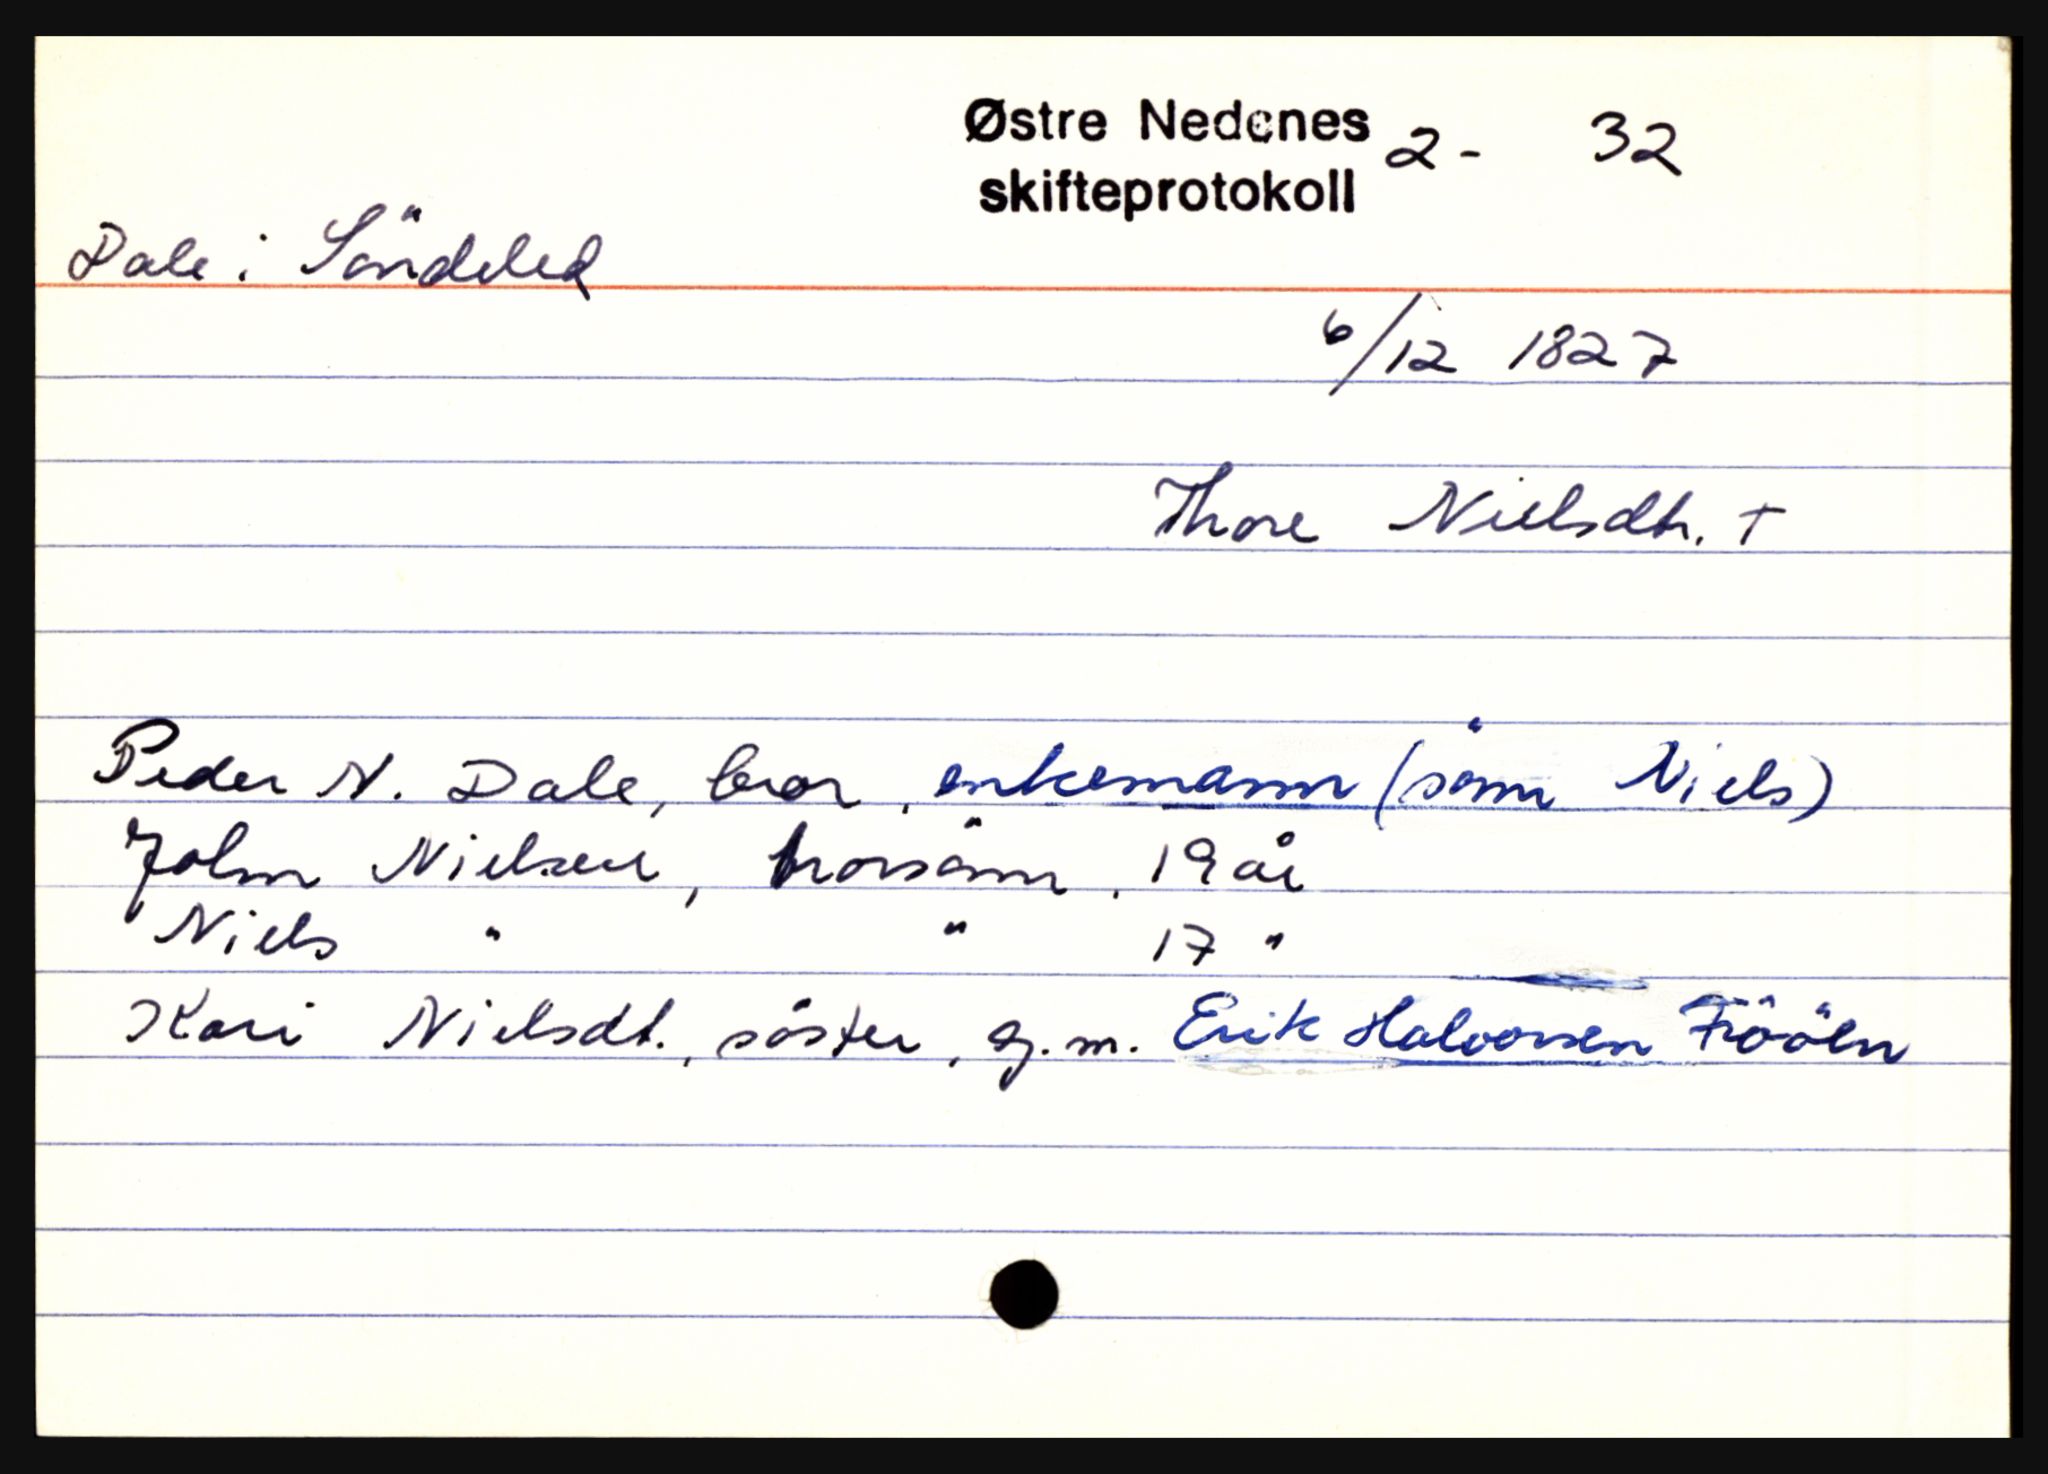 Østre Nedenes 2- 32
skifteprotokoll
Dale i Söndeled
6/12 1827
Thore Nielsdtr. +
Peder N. Dale, bror, enkemann (sönn Niels)
John Nielsen, brorsönn, 19 år
Niels " " 17 "
Kari Nielsdt., söster, g. m. Erik Halvorsen